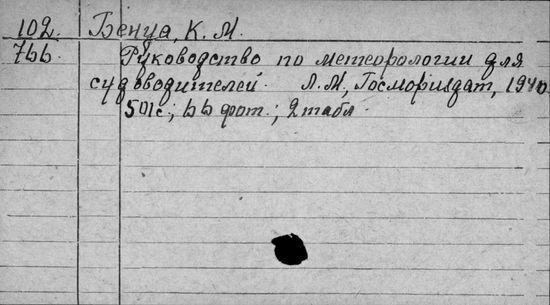 102. Бенуа, К. М.
766. Руководство по метеорологии для
судоводителей. Л.М., Госмориздат, 1940
501с.; 66 фот.; 2 табл.